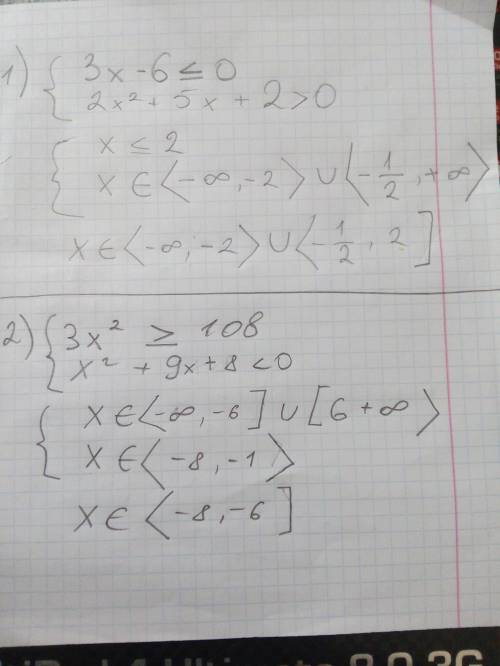 1) { 3x - 6 ≤ 0
2x² + 5x + 2 > 0
{ x ≤ 2
x ∈ ⟨-∞, -2⟩ ∪ ⟨-1/2, +∞⟩
x ∈ ⟨-∞, -2⟩ ∪ ⟨-1/2, 2]
2) { 3x² ≥ 108
x² + 9x + 8 < 0
{ x ∈ ⟨-∞, -6] ∪ [6 +∞⟩
x ∈ ⟨-8, -1⟩
x ∈ ⟨-8, -6]